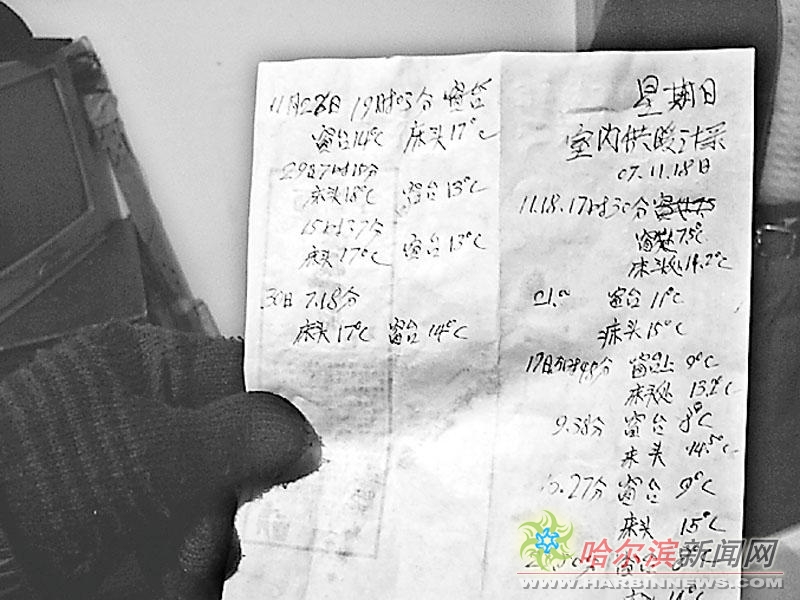 11月28日 19时03分 窗台
窗台14℃ 床头17℃
29日7时18分
床头18℃ 窗台13℃
15时37分
床头17℃ 窗台13℃
30日 7.18分
床头17℃ 窗台14℃
星期日
室内供暖记录
07.11.18日
11.18.17时30分
窗处7.5℃
床头处14.2℃
21.00 窗台11℃
床头15℃
窗台上 9℃
床头处 13.2℃
9.38分 窗台 8℃
床头 14.5℃
.27分 窗台 9℃
床头 15℃
窗台 9℃
14℃
哈尔滨新闻网
WWW.HARBINNEWS.COM